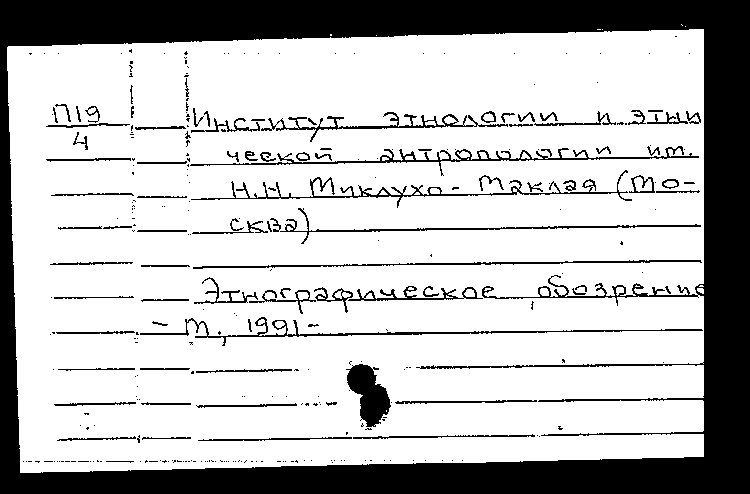 П19
4
Институт этнологии и этни
ческой антропологии им.
Н.Н. Миклухо-Маклая (Мо-
сква)
Этнографическое обозрение
- М., 1991-